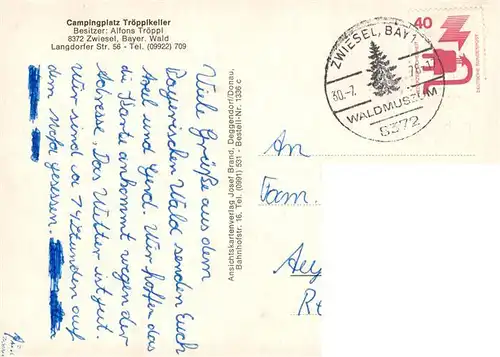 Campingplatz Tröpplkeller
Besitzer: Alfons Tröppl
8372 Zwiesel, Bayer. Wald
Langdorfer Str. 56 - Tel. (09922) 709
Viele Grüße aus dem
Bayrischen Wald senden Euch
Axel und Gerd. Wir hoffen das
die Karte ankommt wegen der
Adresse. Das Wetter ist gut.
Wir sind ca 74 Stunden auf
dem gesessen.
Ansichtskartenverlag Josef Brand, Deggendorf/Donau,
Bahnhofstr. 16, Tel. (0991) 531 - Bestell-Nr. 1336 c
ZWIESEL, BAY 1
30.-7.
WALDMUSEUM
8372
40
DEUTSCHE BUNDESPOST
An
Fam.